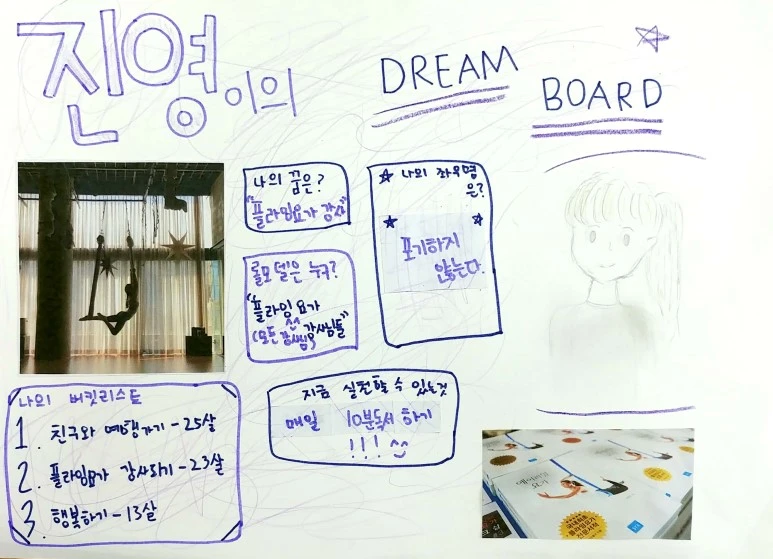 진영이의
DREAM
BOARD
나의 꿈은?
"플라잉요가 강사"
나의 좌우명
은?
포기하지
않는다.
롤모델은 누구?
"플라잉 요가
(모든 강사님) 강사님들"
나의 버킷리스트
1. 친구와 여행가기-25살
2. 플라잉요가 강사되기-23살
3. 행복하기-13살
지금 실천할 수 있는것
매일 10분독서 하기
!!! ^^
요가